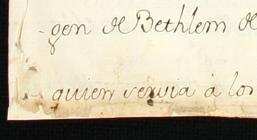 -gen de Bethlem de
quien servia à los